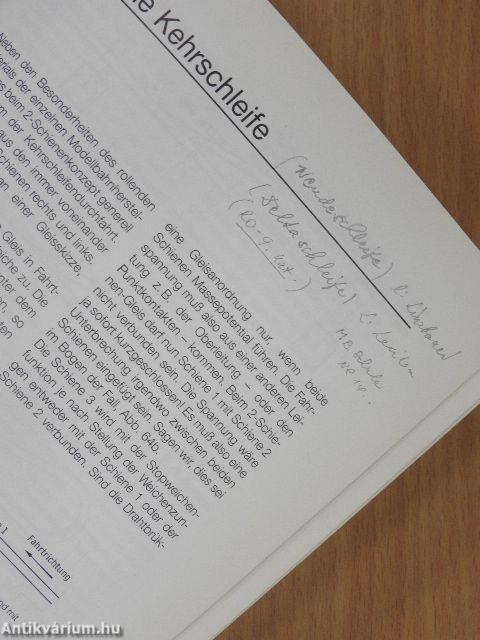 ne Kehrschleife
Neben den Besonderheiten des rollenden
erials der einzelnen Modellbahnherstel-
s beim 2-Schienenkonzept generell
m der Kehrschleifendurchfahrt.
aus den immer voneinander
chienen rechts und links.
an einer Gleisskizze,
Gleis in Fahrt-
eiche zu. Die
nter dem
n, so
ten
eine Gleisanordnung nur, wenn beide
Schienen Massepotential führen. Die Fahr-
spannung muß also aus einer anderen Lei-
tung z.B. der Oberleitung – oder den
Punktkontakten – kommen. Beim 2-Schie-
nen-Gleis darf nun Schiene 1 mit Schiene 2
nicht verbunden sein. Die Spannung wäre
ja sofort kurzgeschlossen! Es muß also eine
Unterbrechung irgendwo zwischen beiden
Schienen eingefügt sein. Sagen wir, dies sei
im Bogen der Fall. Abb. 64b.
Die Schiene 3 wird mit der Stopweichen-
funktion je nach Stellung der Weichenzun-
gen entweder mit der Schiene 1 oder der
Schiene 2 verbunden. Sind die Drahtbrük-
(Wendeschleife)
(Deltaschleife)
Fahrtrichtung
Antikvárium.hu